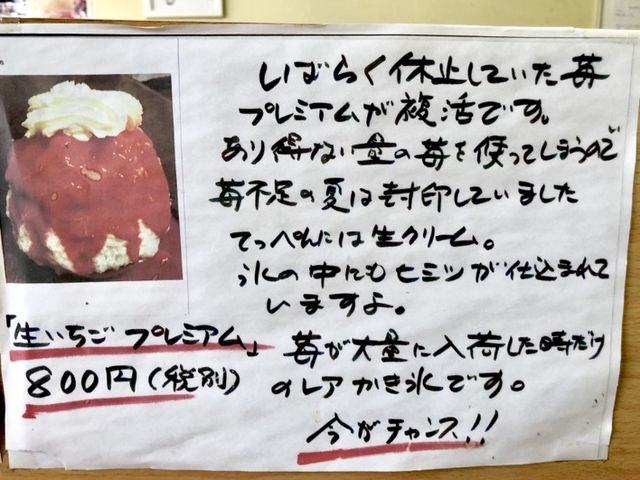 いばらく休止していた苺
プレミアムが複活です。
あり得ない量の苺を使ってしまうので
苺不足の夏は封印していました
てっぺんには生クリーム。
氷の中にもヒミツが仕込まれて
いますよ。
「生いちごプレミアム」
800円(税別)
苺が大量に入荷した時だけ
のレアかき氷です。
今がチャンス!!